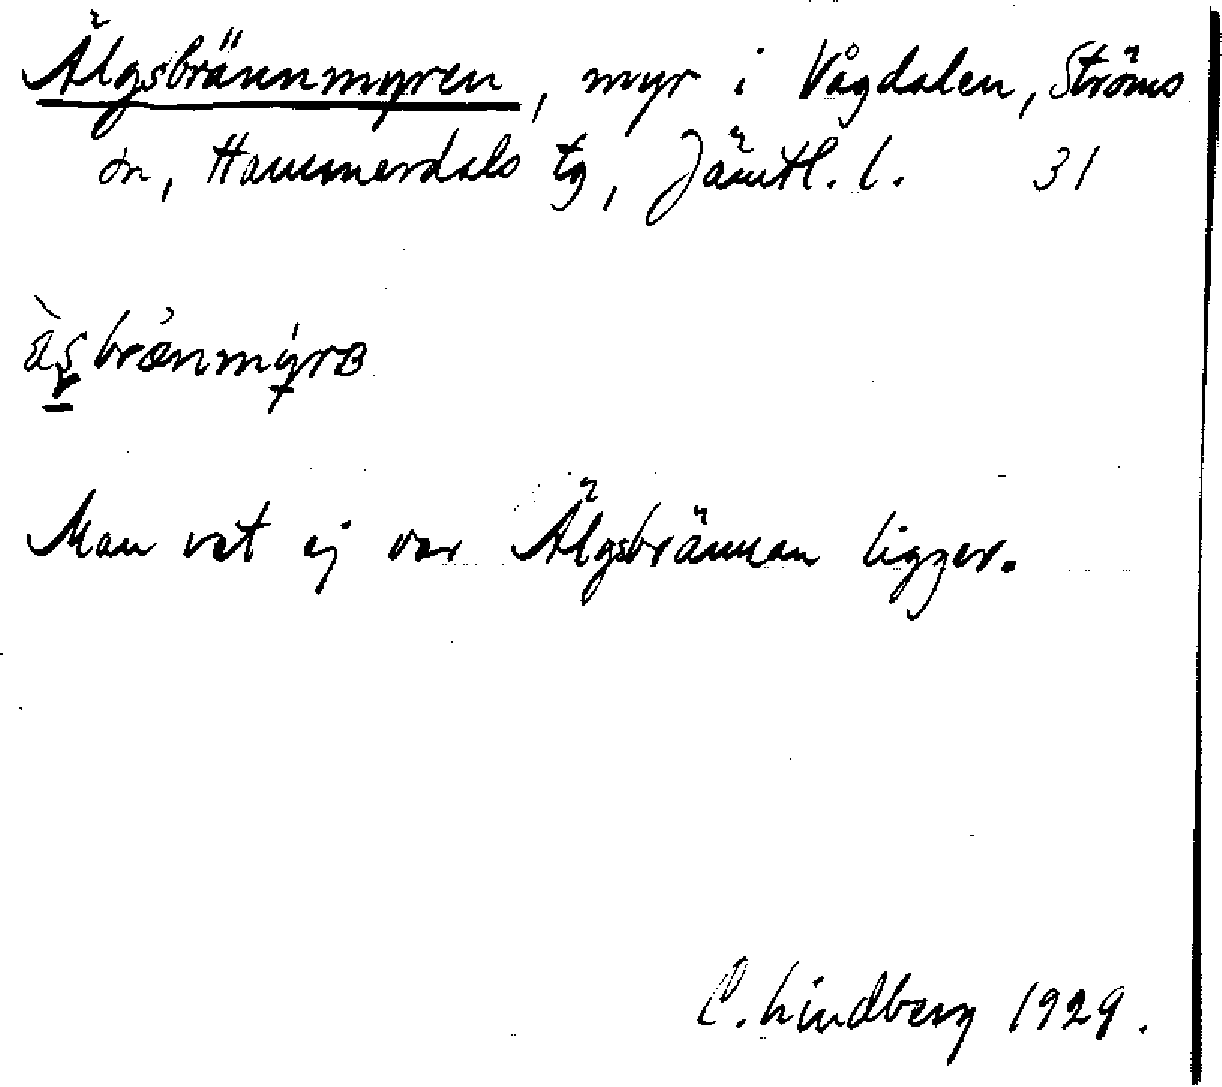 Älgsbrännmyren, myr i Vågdalen, Ströms
sn, Hammerdals tg, Jämtl. l. 31
Man vet ej var Älgsbrännan ligger.
C. Lindberg 1929.